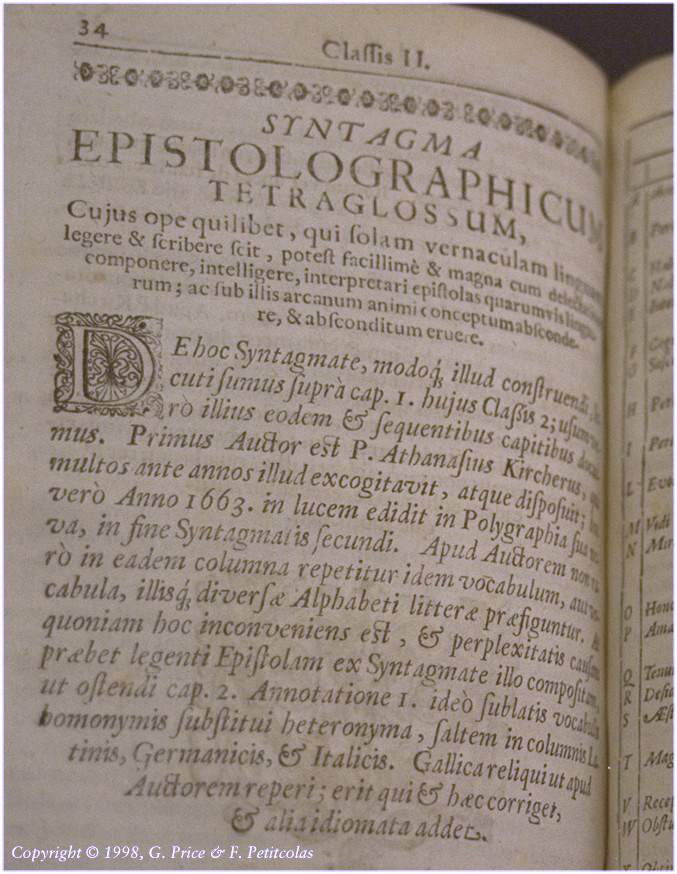 34
Claſſis II.
SYNTAGMA
EPISTOLOGRAPHICUM
TETRAGLOSSUM,
Cujus ope quilibet, qui ſolam vernaculam
legere & ſcribere ſcit, poteſt facillimè & magna cum
componere, intelligere, interpretari epiſtolas quarumvis
rum; ac ſub illis arcanum animi conceptum abſconde-
re, & abſconditum eruere.
DE hoc Syntagmate, modoq́; illud conſtruendi,
cuti ſumus ſuprà cap. 1. hujus Claſſis 2; uſum
rò illius eodem & ſequentibus capitibus
mus. Primus Auctor eſt P. Athanaſius Kircherus,
multos ante annos illud excogitavit, atque diſpoſuit;
verò Anno 1663. in lucem edidit in Polygraphia ſua
va, in fine Syntagmatis ſecundi. Apud Auctorem non
rò in eadem columna repetitur idem vocabulum, aut
cabula, illisq́; diverſæ Alphabeti litteræ præfiguntur.
quoniam hoc inconveniens eſt, & perplexitatis
præbet legenti Epiſtolam ex Syntagmate illo compoſitam,
ut oſtendi cap. 2. Annotatione 1. ideò ſublatis
homonymis ſubſtitui heteronyma, ſaltem in columnis La-
tinis, Germanicis, & Italicis. Gallica reliqui ut apud
Auctorem reperi; erit qui & hæc corriget,
& alia idiomata addet.
B
E
F
H
I
L
M Vidi
N
O
P
Q
R
S
T
V
W
Copyright © 1998, G. Price & F. Petitcolas